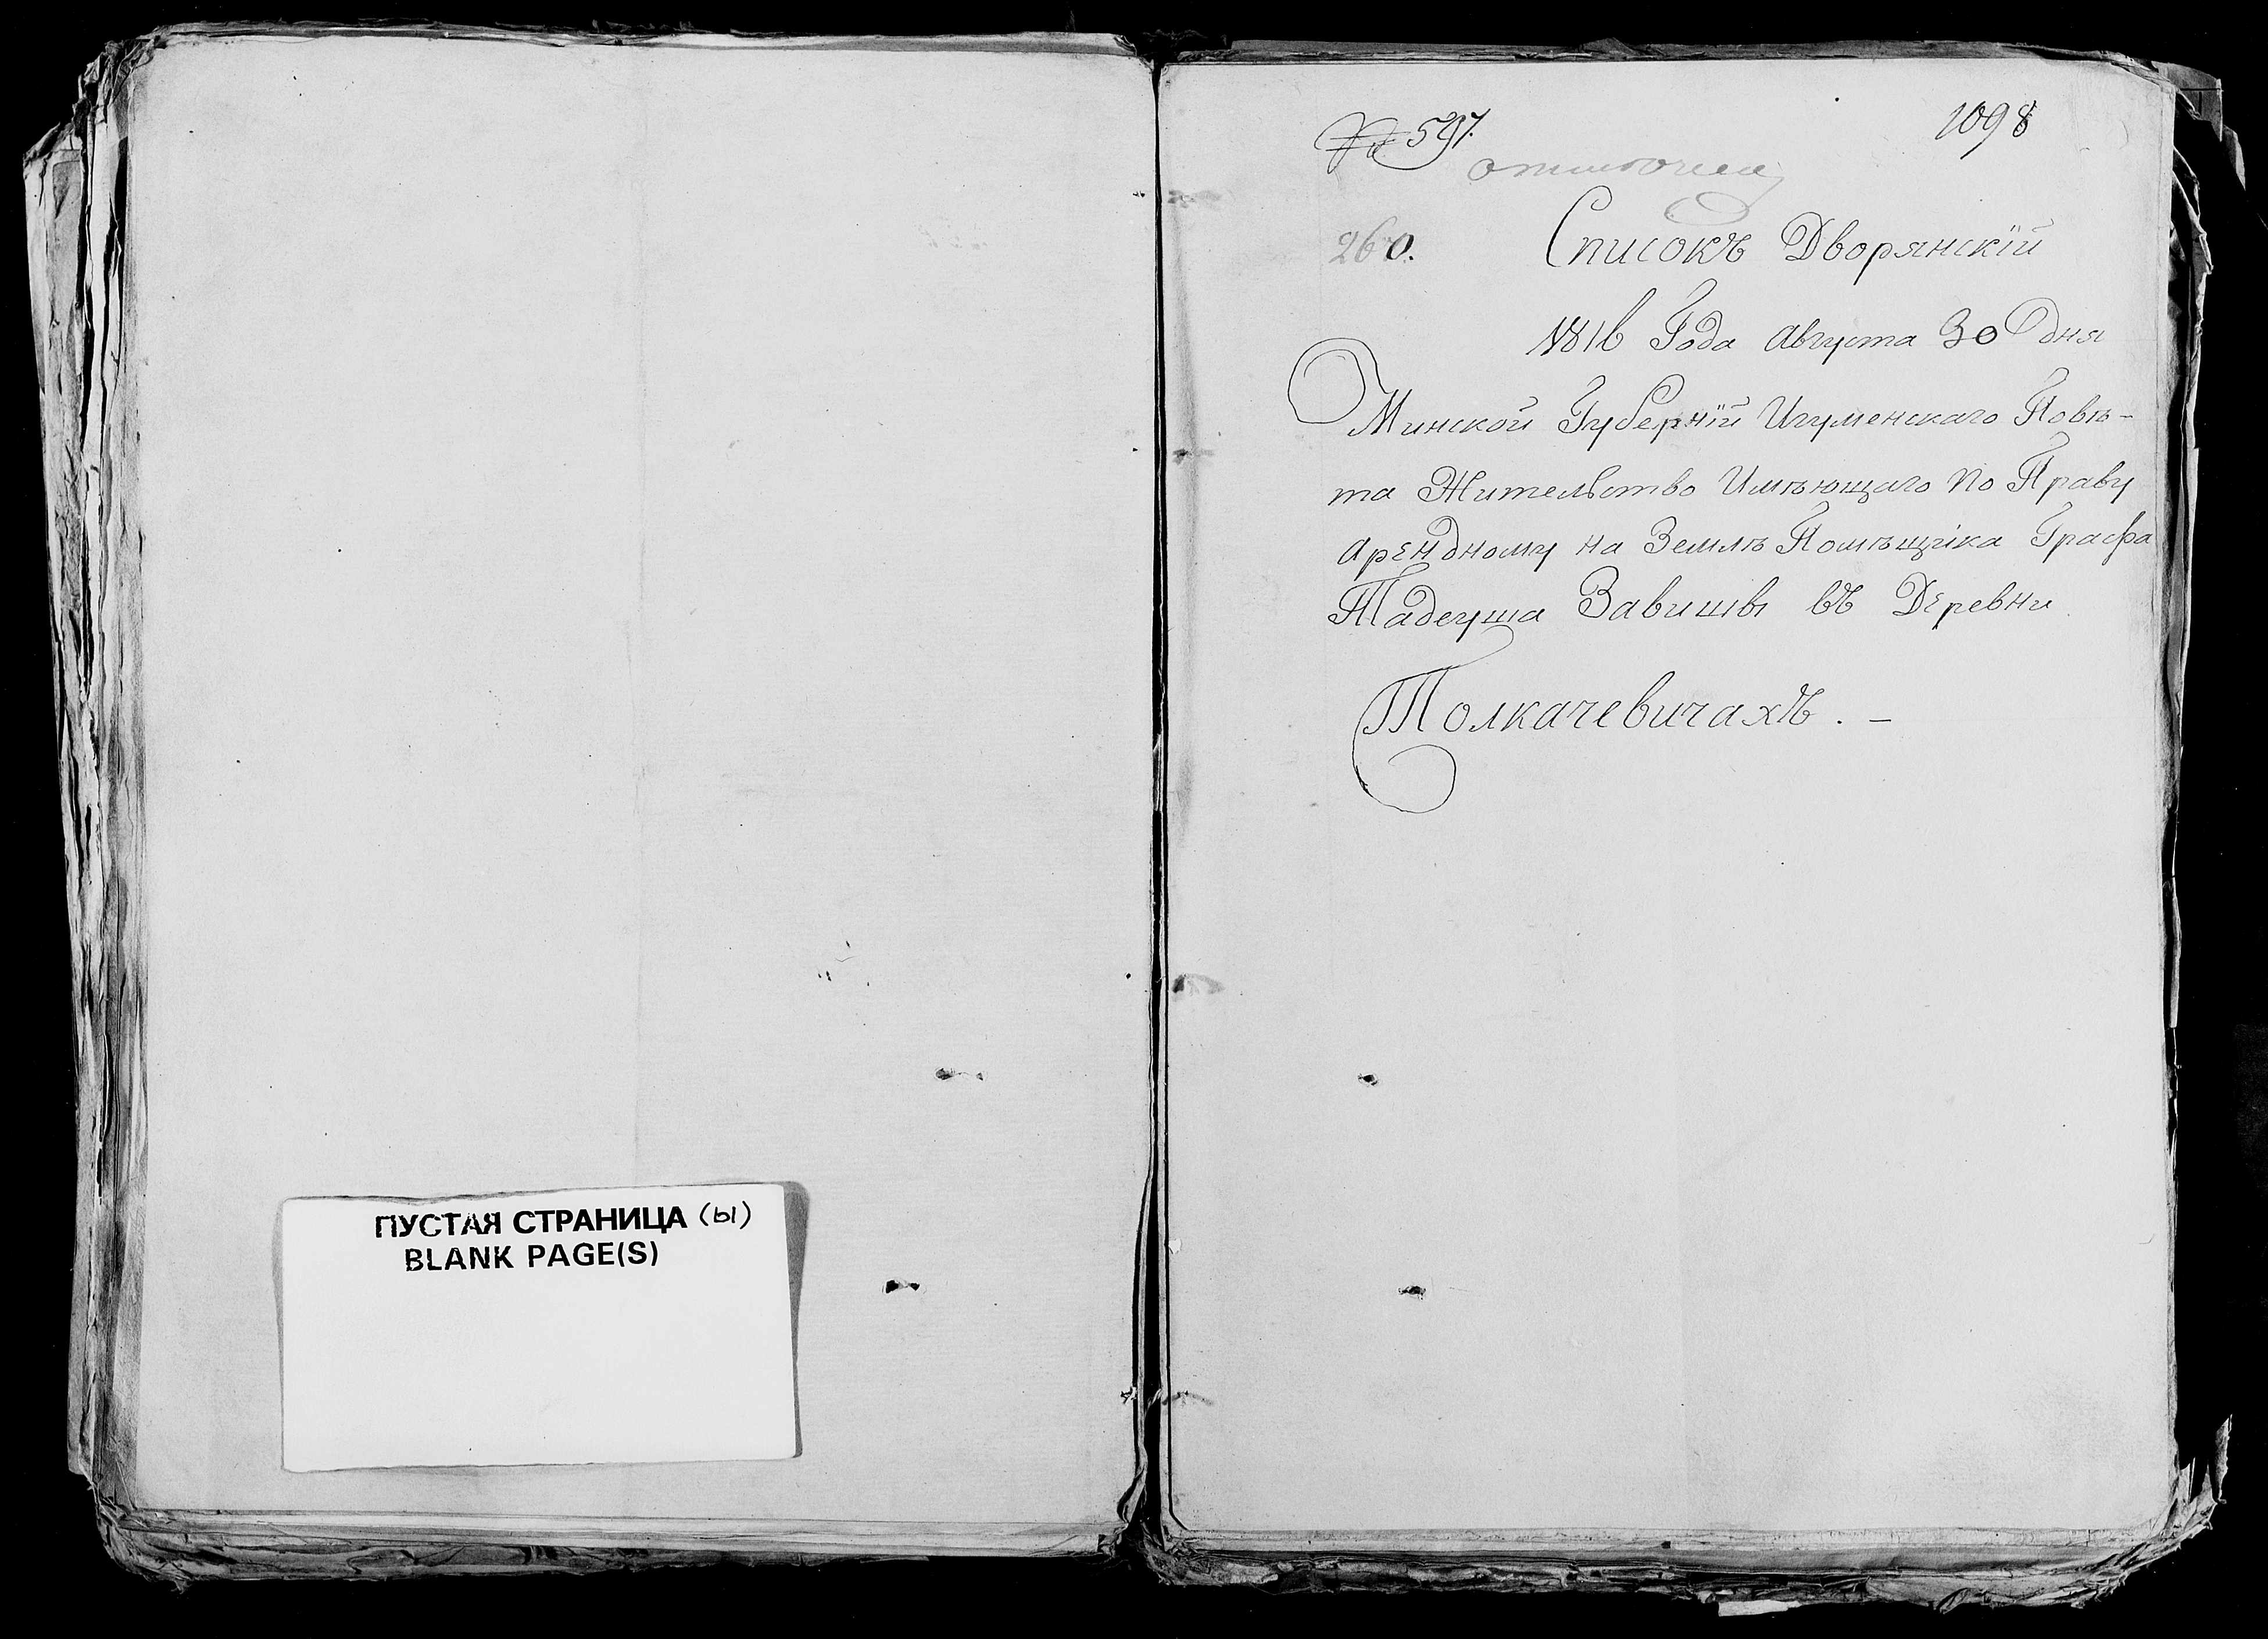 ПУСТАЯ СТРАНИЦА (ы)
BLANK PAGE(S)
№ 597.
1098
260.
Списокъ Дворянскій
1816 Года Августа 30 дня
Минской Губерніи Игуменскаго Повѣ-
та Жительство Имѣющаго по Праву
арендному на Землѣ Помѣщика Графа
Тадеуша Завишы въ Деревни
Толкачевичахъ. —